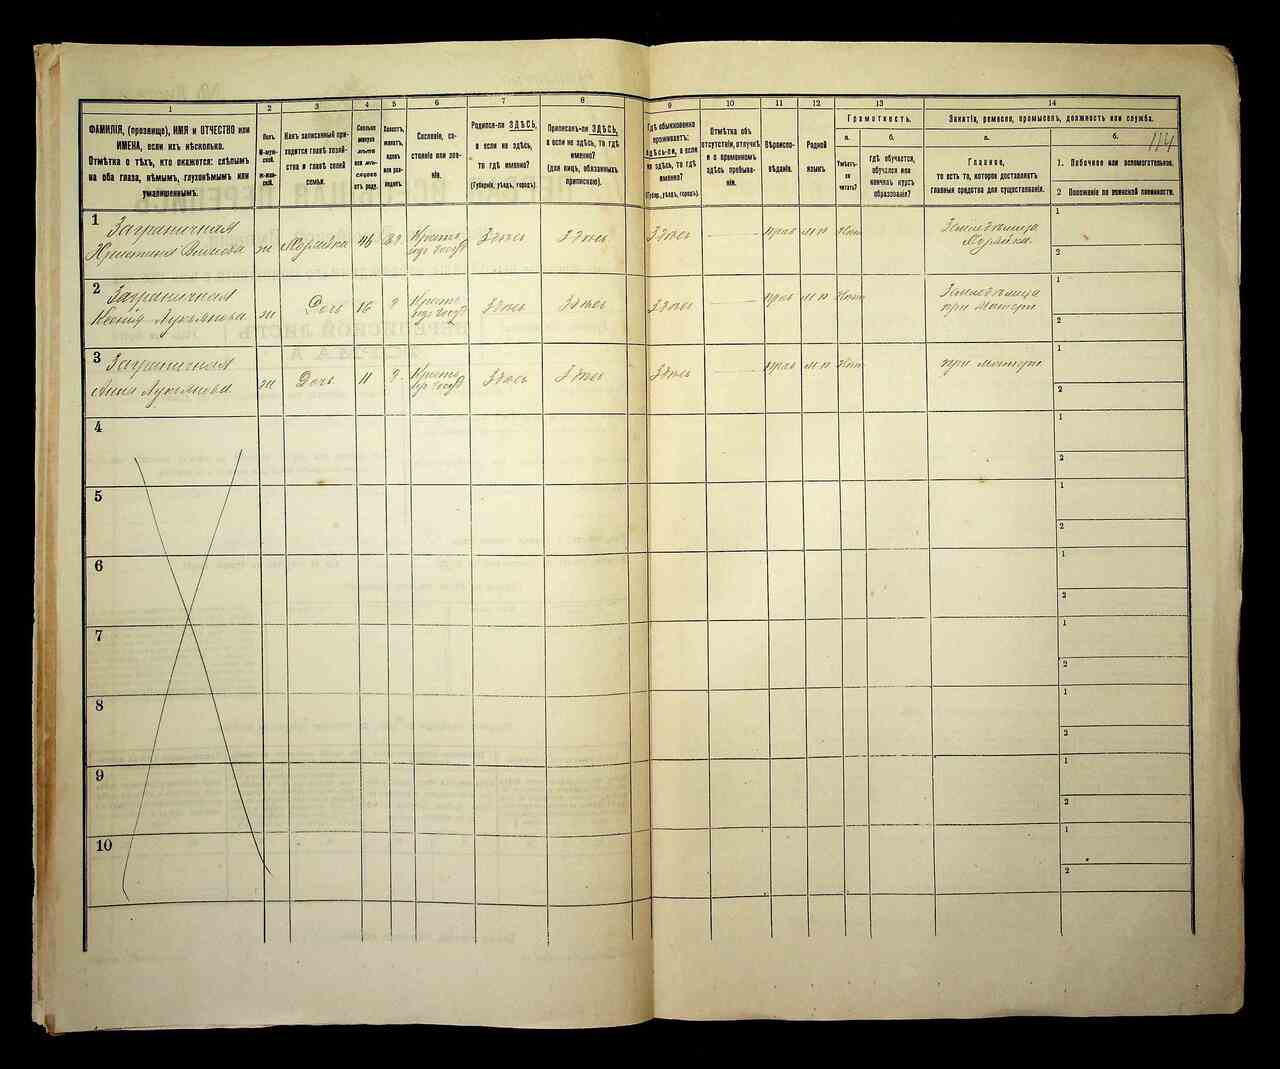 1 2 3 4 5 6 7 8 9 10 11 12 13 14
ФАМИЛІЯ, (прозвище), ИМЯ и ОТЧЕСТВО или
ИМЕНА, если ихъ нѣсколько.
Отмѣтка о тѣхъ, кто окажется: слѣпымъ
на оба глаза, нѣмымъ, глухонѣмымъ или
умалишеннымъ.
Полъ.
М-муж-
ской.
Ж-жен-
скій.
Какъ записанный при-
ходится главѣ хозяй-
ства и главѣ своей
семьи.
Сколько
минуло
лѣтъ
или мѣ-
сяцевъ
отъ роду.
Холостъ,
женатъ,
вдовъ
или раз-
веденъ.
Сословіе, со-
стояніе или зва-
ніе.
Родился-ли ЗДѢСЬ,
а если не здѣсь,
то гдѣ именно?
(Губернія, уѣздъ, городъ).
Приписанъ-ли ЗДѢСЬ,
а если не здѣсь, то гдѣ
именно?
(для лицъ, обязанныхъ
припискою).
Гдѣ обыкновенно
проживаетъ:
здѣсь-ли, а если
не здѣсь, то гдѣ
именно?
(Губер., уѣздъ, городъ).
Отмѣтка объ
отсутствіи, отлучкѣ
и о временномъ
здѣсь пребыва-
ніи.
Вѣроиспо-
вѣданіе.
Родной
языкъ.
Грамотность.
а.
Умѣетъ-
ли
читать?
б.
Гдѣ обучается,
обучался или
кончилъ курсъ
образованія?
Занятіе, ремесло, промыселъ, должность или служба.
а.
Главное,
то есть то, которое доставляетъ
главныя средства для существованія.
б.
114
1. Побочное или вспомогательное.
2 Положеніе по воинской повинности.
1 Заграничная
ж 46 Здѣсь Здѣсь Здѣсь прав м р Нѣтъ
1
2
2 Заграничная
Ксенія Лукьянова ж Дочь 16 Здѣсь Здѣсь Здѣсь прав м р Нѣтъ
при матери
1
2
3 Заграничная
Анна Лукьянова ж Дочь 11 Здѣсь Здѣсь Здѣсь прав м р Нѣтъ при матери
1
2
4 1
2
5 1
2
6 1
2
7 1
2
8 1
2
9 1
2
10 1
2